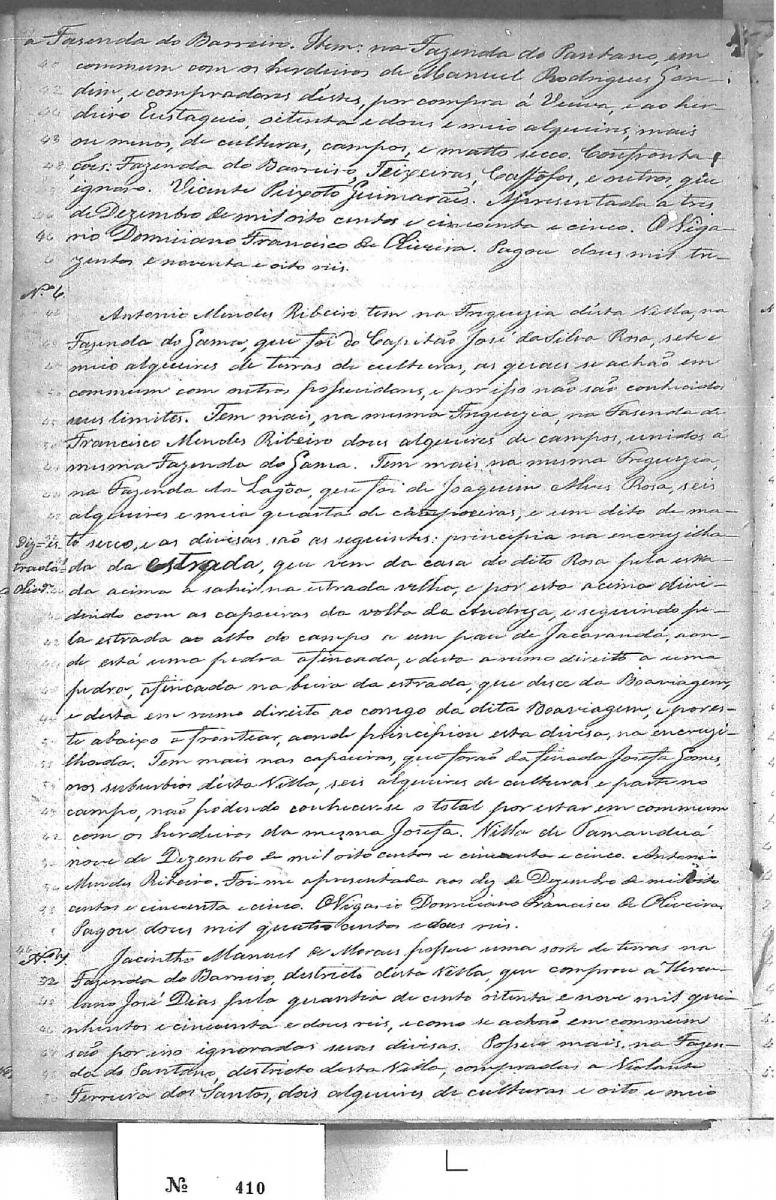 a Fazenda do Barreiro. Item: na Fazenda do Pantano, em
commum com os herdeiros de Manuel Rodrigues Gon-
dim, e compradores déstes, por compra á Viuva, e ao her-
deiro Eustaquio, setenta e dous e meio alqueires, mais
ou menos, de culturas, campos, e matto secco. Confronta-
ções: Fazenda do Barreiro, Teixeiras, e outros, que
ignoro. Vicente Peixoto Guimarães. Apresentada a tres
de Dezembro de mil oito centos e cincoenta e cinco. O Viga-
rio Domiciano Francisco de Oliveira. Pagou dous mil tre-
zentos e noventa e oito reis.
Nº 6
Antonio Mendes Ribeiro tem na Freguezia désta Villa, na
Fazenda do Gama, que foi do Capitão José da Silva Rosa, sete e
meio alqueires de terras de culturas, as quaes se achão em
commum com outros possuidores, e por isso não são conhecidos
seus limites. Tem mais, na mesma Freguezia, na Fazenda de
Francisco Mendes Ribeiro dous alqueires de campos, unidos á
mesma Fazenda do Gama. Tem mais na mesma Freguezia,
na Fazenda da Lagôa, que foi de Joaquim Alves Rosa, seis
alqueires e meia quarta de capoeiras, e um dito de ma-
to secco, e as divisas são as seguintes: principia na encruzilha-
Diz = es
trada
Olivrª
da da estrada, que vem da casa do dito Rosa pela estra-
da acima a sahir na estrada velha, e por esta acima divi-
dindo com as capoeiras da volta da Andreza, e seguindo pe-
la estrada ao alto do campo a um pau de Jacarandá, aon-
de está uma pedra afincada, e desta a rumo direito a uma
pedra, afincada na beira da estrada, que desce da Boaviagem,
e desta em rumo direito ao corrego da dita Boaviagem, e por es-
te abaixo a frontear, aonde principiou esta divisa, na encruzi-
lhada. Tem mais nas capoeiras, que forão da finada Josefa Gomes,
nos suburbios désta Villa, seis alqueires de culturas e parte no
campo, não podendo conhecer-se o total por estar em commum
com os herdeiros da mesma Josefa. Villa de Tamanduá
nove de Dezembro de mil oito centos e cincoenta e cinco. Antonio
Mendes Ribeiro. Foi-me apresentada aos dez de Dezembro de mil oito
centos e cincoenta e cinco. O Vigario Domiciano Francisco de Oliveira.
Pagou dous mil quatro centos e dous reis.
Nº 7
Jacintho Manuel de Moraes possue uma sorte de terras na
Fazenda do Barreiro, districto désta Villa, que comprou a Hercu-
lano José Dias pela quantia de cento setenta e nove mil qui-
nhentos e cincoenta e dous reis, e como se achão em commum
são por isso ignoradas suas divisas. Possue mais, na Fazen-
da do Pantano, districto desta Villa, compradas a Violante
Ferreira dos Santos, dois alqueires de culturas e oito e meio
Nº 410